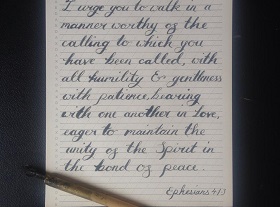 I urge you to walk in a
manner worthy of the
calling to which you
have been called, with
all humility & gentleness
with patience, bearing
with one another in Love,
eager to maintain the
unity of the Spirit in
the bond of peace.
Ephesians 4:1-3